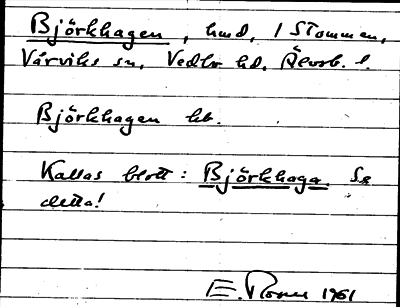 Björkhagen, hmd, / Stommen,
Värviks sn, Vedbo hd. Älvsb. l.
Björkhagen hb.
Kallas blott: Björkhaga. Se
detta!
E. 1961